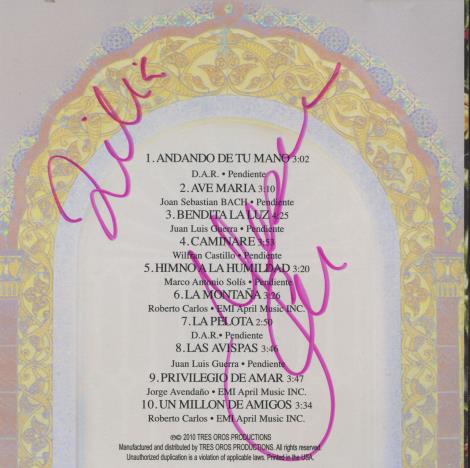 Lilia
1. ANDANDO DE TU MANO 3:02
D.A.R. • Pendiente
2. AVE MARIA 3:10
Joan Sebastian BACH • Pendiente
3. BENDITA LA LUZ 4:25
Juan Luis Guerra • Pendiente
4. CAMINARE 3:53
Wilfran Castillo • Pendiente
5. HIMNO A LA HUMILDAD 3:20
Marco Antonio Solís • Pendiente
6. LA MONTAÑA 3:26
Roberto Carlos • EMI April Music INC.
7. LA PELOTA 2:50
D.A.R• Pendiente
8. LAS AVISPAS 3:46
Juan Luis Guerra • Pendiente
9. PRIVILEGIO DE AMAR 3:47
Jorge Avendaño • EMI April Music INC.
10. UN MILLON DE AMIGOS 3:34
Roberto Carlos • EMI April Music INC.
℗© 2010 TRES OROS PRODUCTIONS
Manufactured and distributed by TRES OROS PRODUCTIONS. All rights reserved.
Unauthorized duplication is a violation of applicable laws. Printed in the USA.